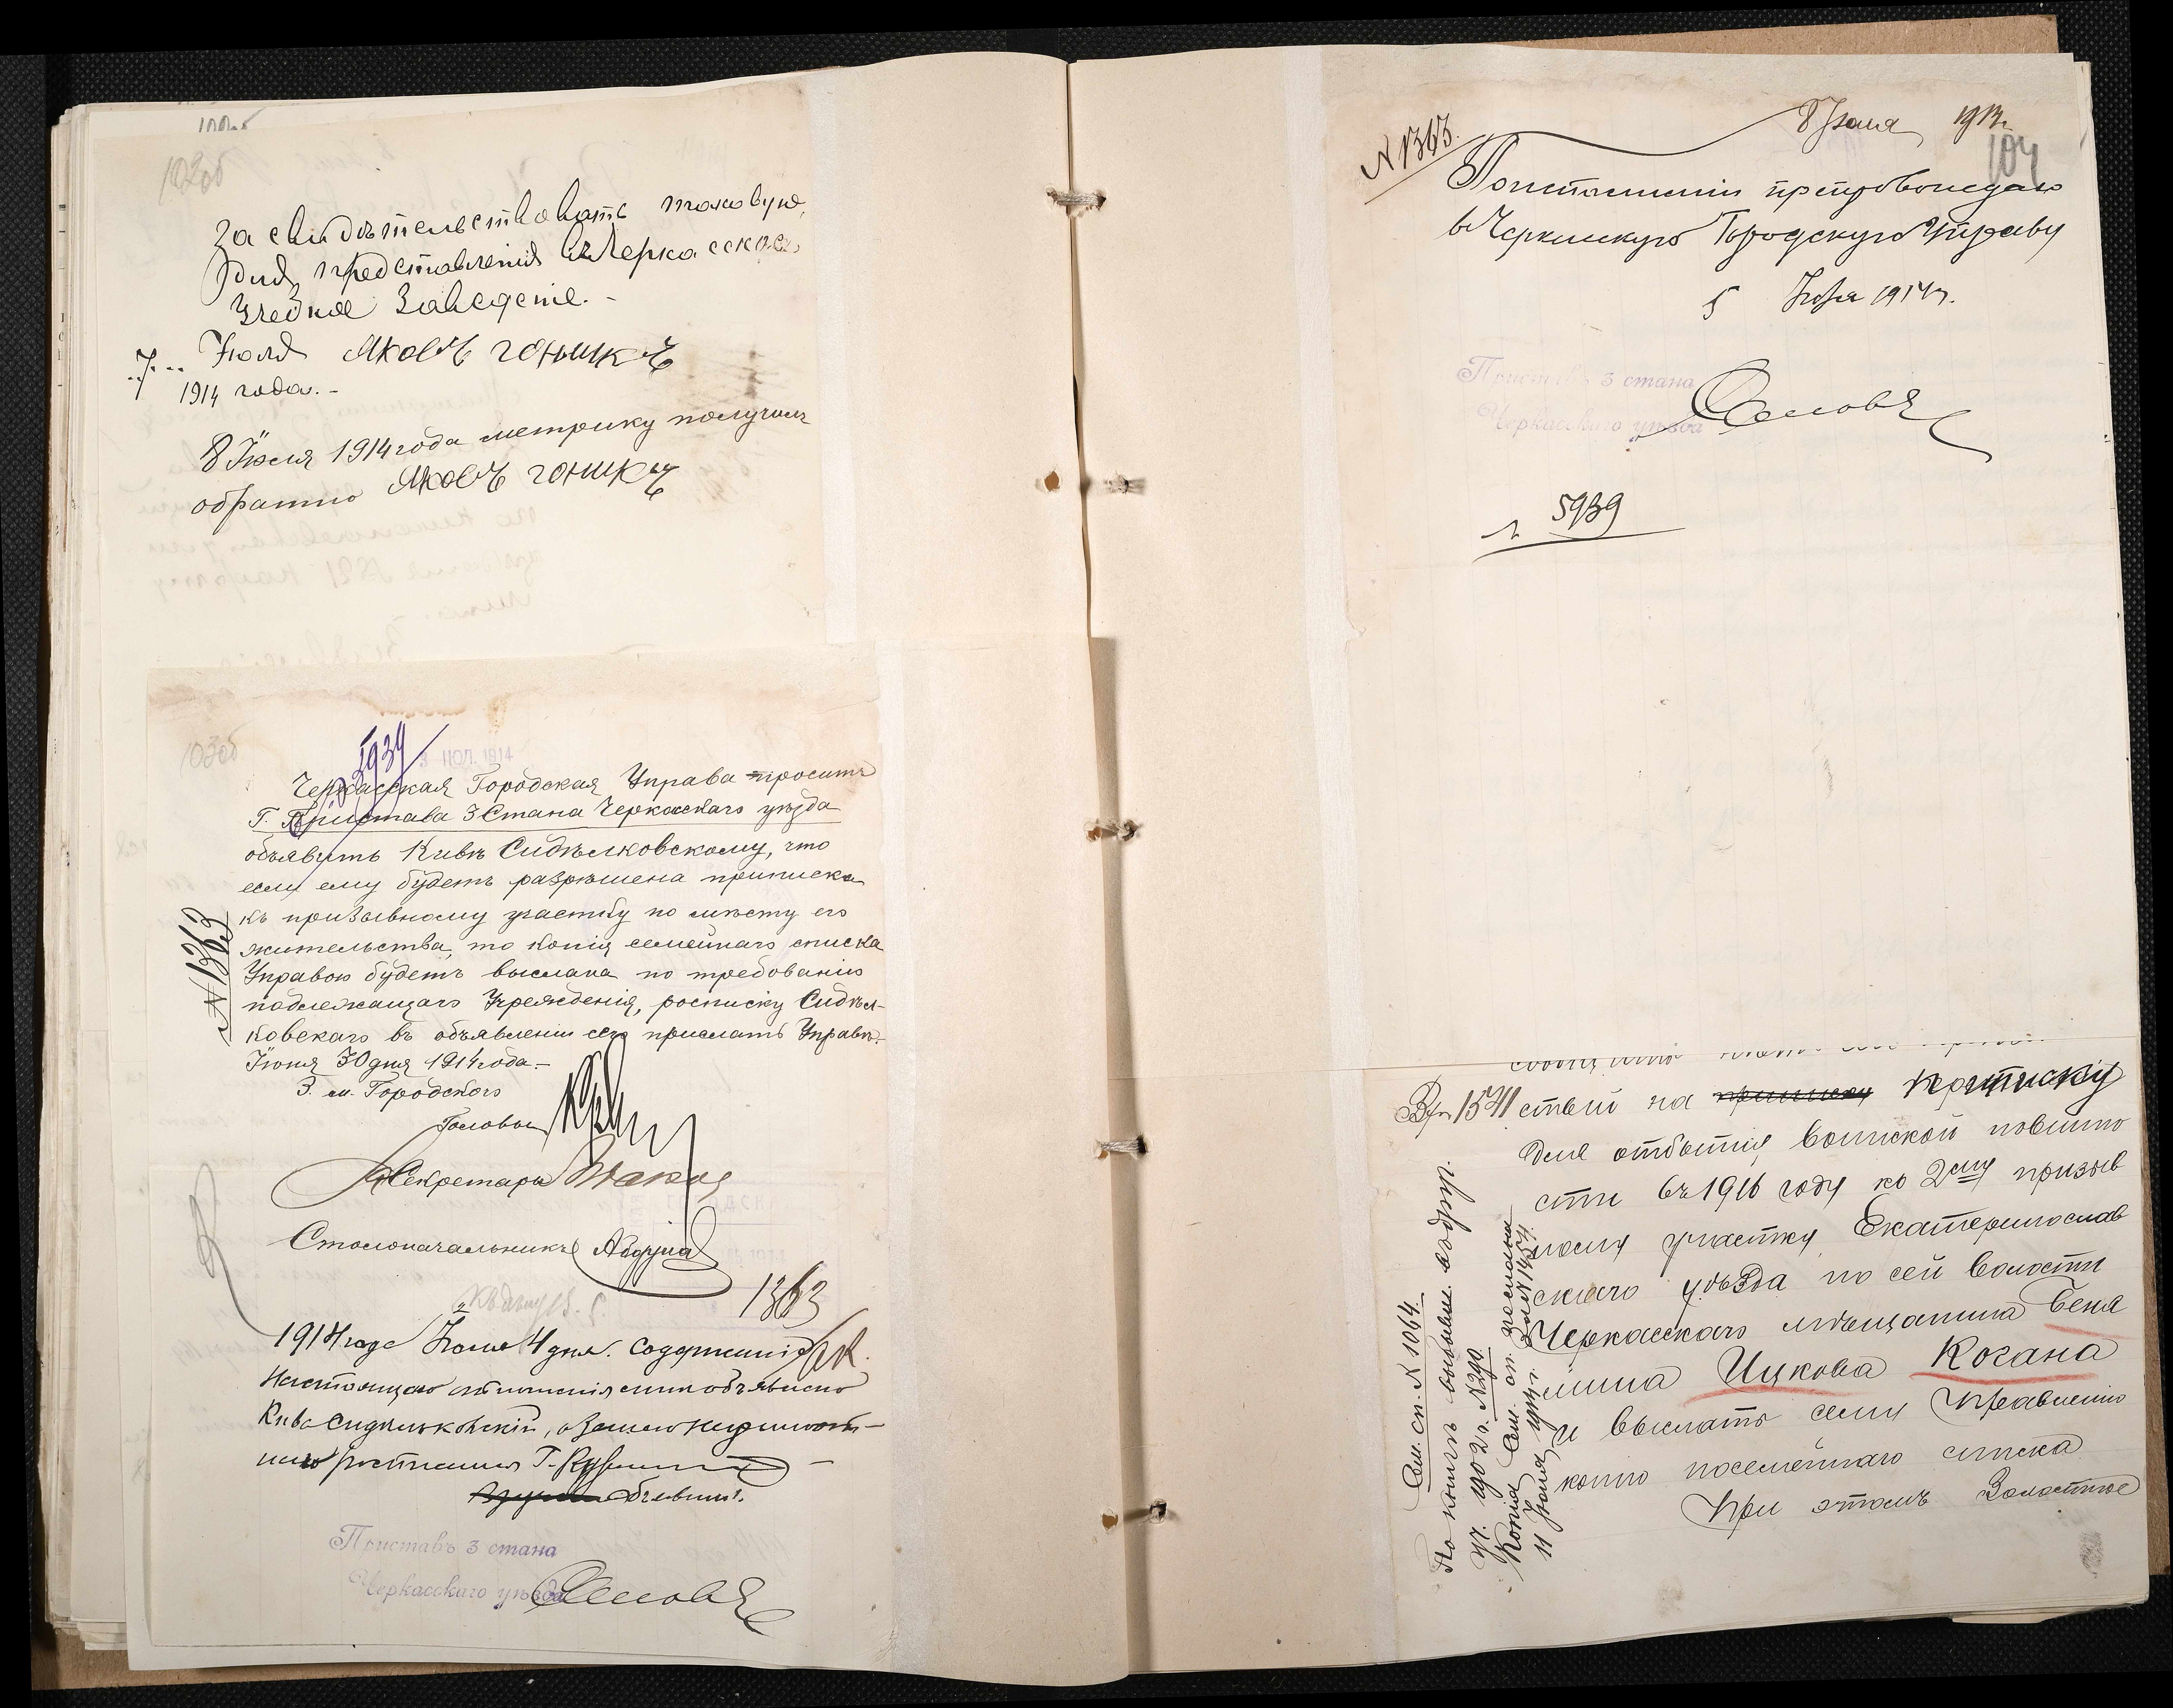 102об
Засвидѣтельствовать таковую,
для представленія въ Черкасское
Учебное Заведеніе.-
7 Іюля Яковъ Гоникъ
1914 года.-
8 Іюля 1914 года метрику получилъ
обратно Яковъ Гоникъ
103об
5939
3 ІЮЛ. 1914
Черкасская Городская Управа проситъ
Г. Пристава 3 Стана Черкасскаго уѣзда
объявить Кивѣ Сидѣлковскому, что
если ему будетъ разрѣшена приписка
къ призывному участку по мѣсту его
жительства, то копія семейнаго списка
Управою будетъ выслана по требованію
подлежащаго Учрежденія, росписку Сидѣл-
ковскаго въ объявленіи сего прислать Управѣ.
Іюня 30 дня 1914 года.-
№ 1363
З. м. Городского
Головы
Секретарь
Столоначальникъ
1363
1914 года Іюля 4 дня. Содержаніе
настоящаго отношенія мнѣ объявлено
Кива Сидѣлковскій, а за него неграмот-
наго росписался
Объявилъ.
Приставъ 3 стана
Черкасскаго уѣзда
№ 1363.
8 Іюля 1914
104
препровождаю
въ Черкасскую Городскую Управу
5 Іюля 1914 г.
Приставъ 3 стана
Черкасскаго уѣзда
5939
Вх. 1541 ствій на приписку приписку
для отбытія воинской повинно
сти въ 1916 году ко 2му призыв
ному участку Екатеринослав
скаго уѣзда по сей волости
Черкасскаго мѣщанина Беня
мина Ицкова Когана
и выслать сему Правленію
копію посемейнаго списка
При этомъ Волостное
Сем. сп. № 1064.
№ 290
Копія сем. сп. послана
11 Іюля